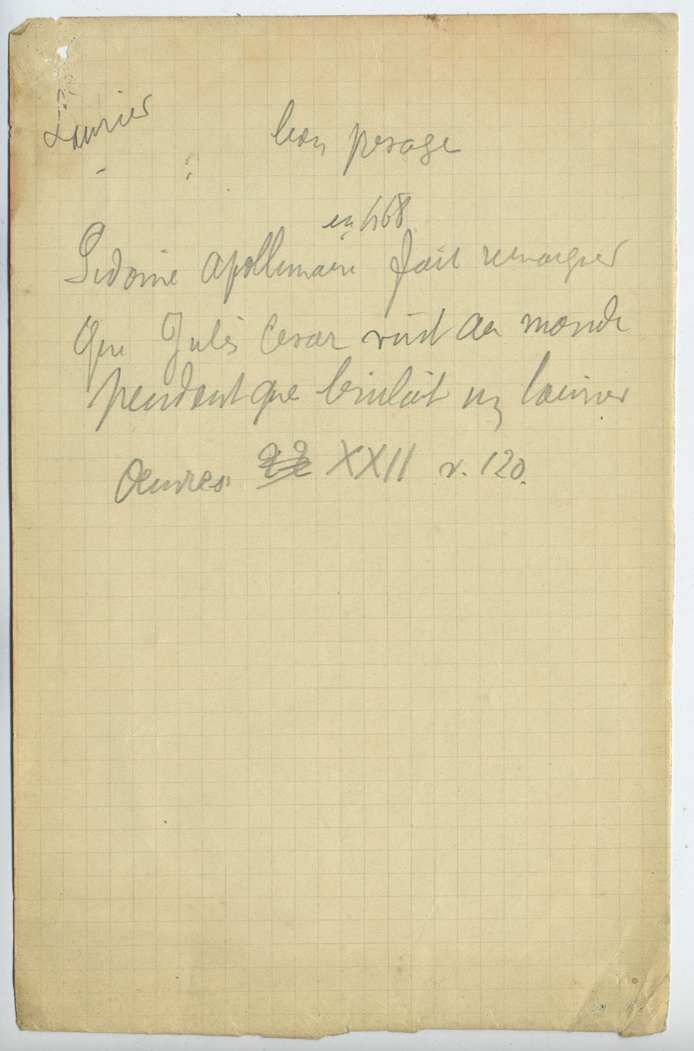 Laurier
bon presage
en 468
Sidoine Apollinaire fait remarquer
que Jules Cesar vint au monde
pendant que brulait un laurier
Oeuvres 22 XXII v. 120.